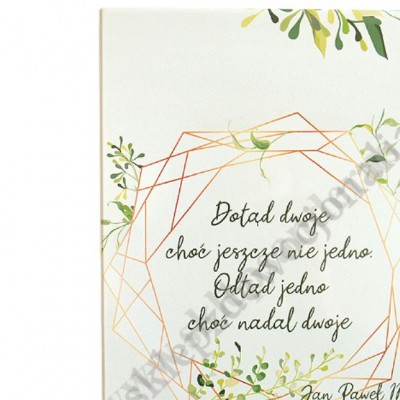 Dotąd dwoje
choć jeszcze nie jedno.
Odtąd jedno
choć nadal dwoje
Jan Paweł